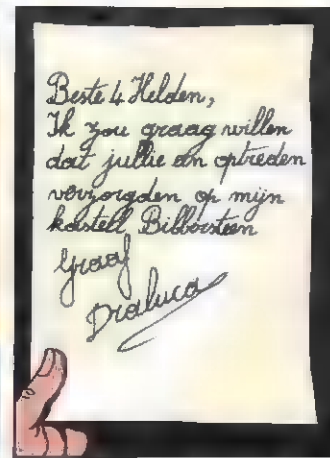 Beste 4 Helden,
Ik zou graag willen
dat jullie en optreden
verzorgden op mijn
kastell Bibbersteen
Graaf
Draluca